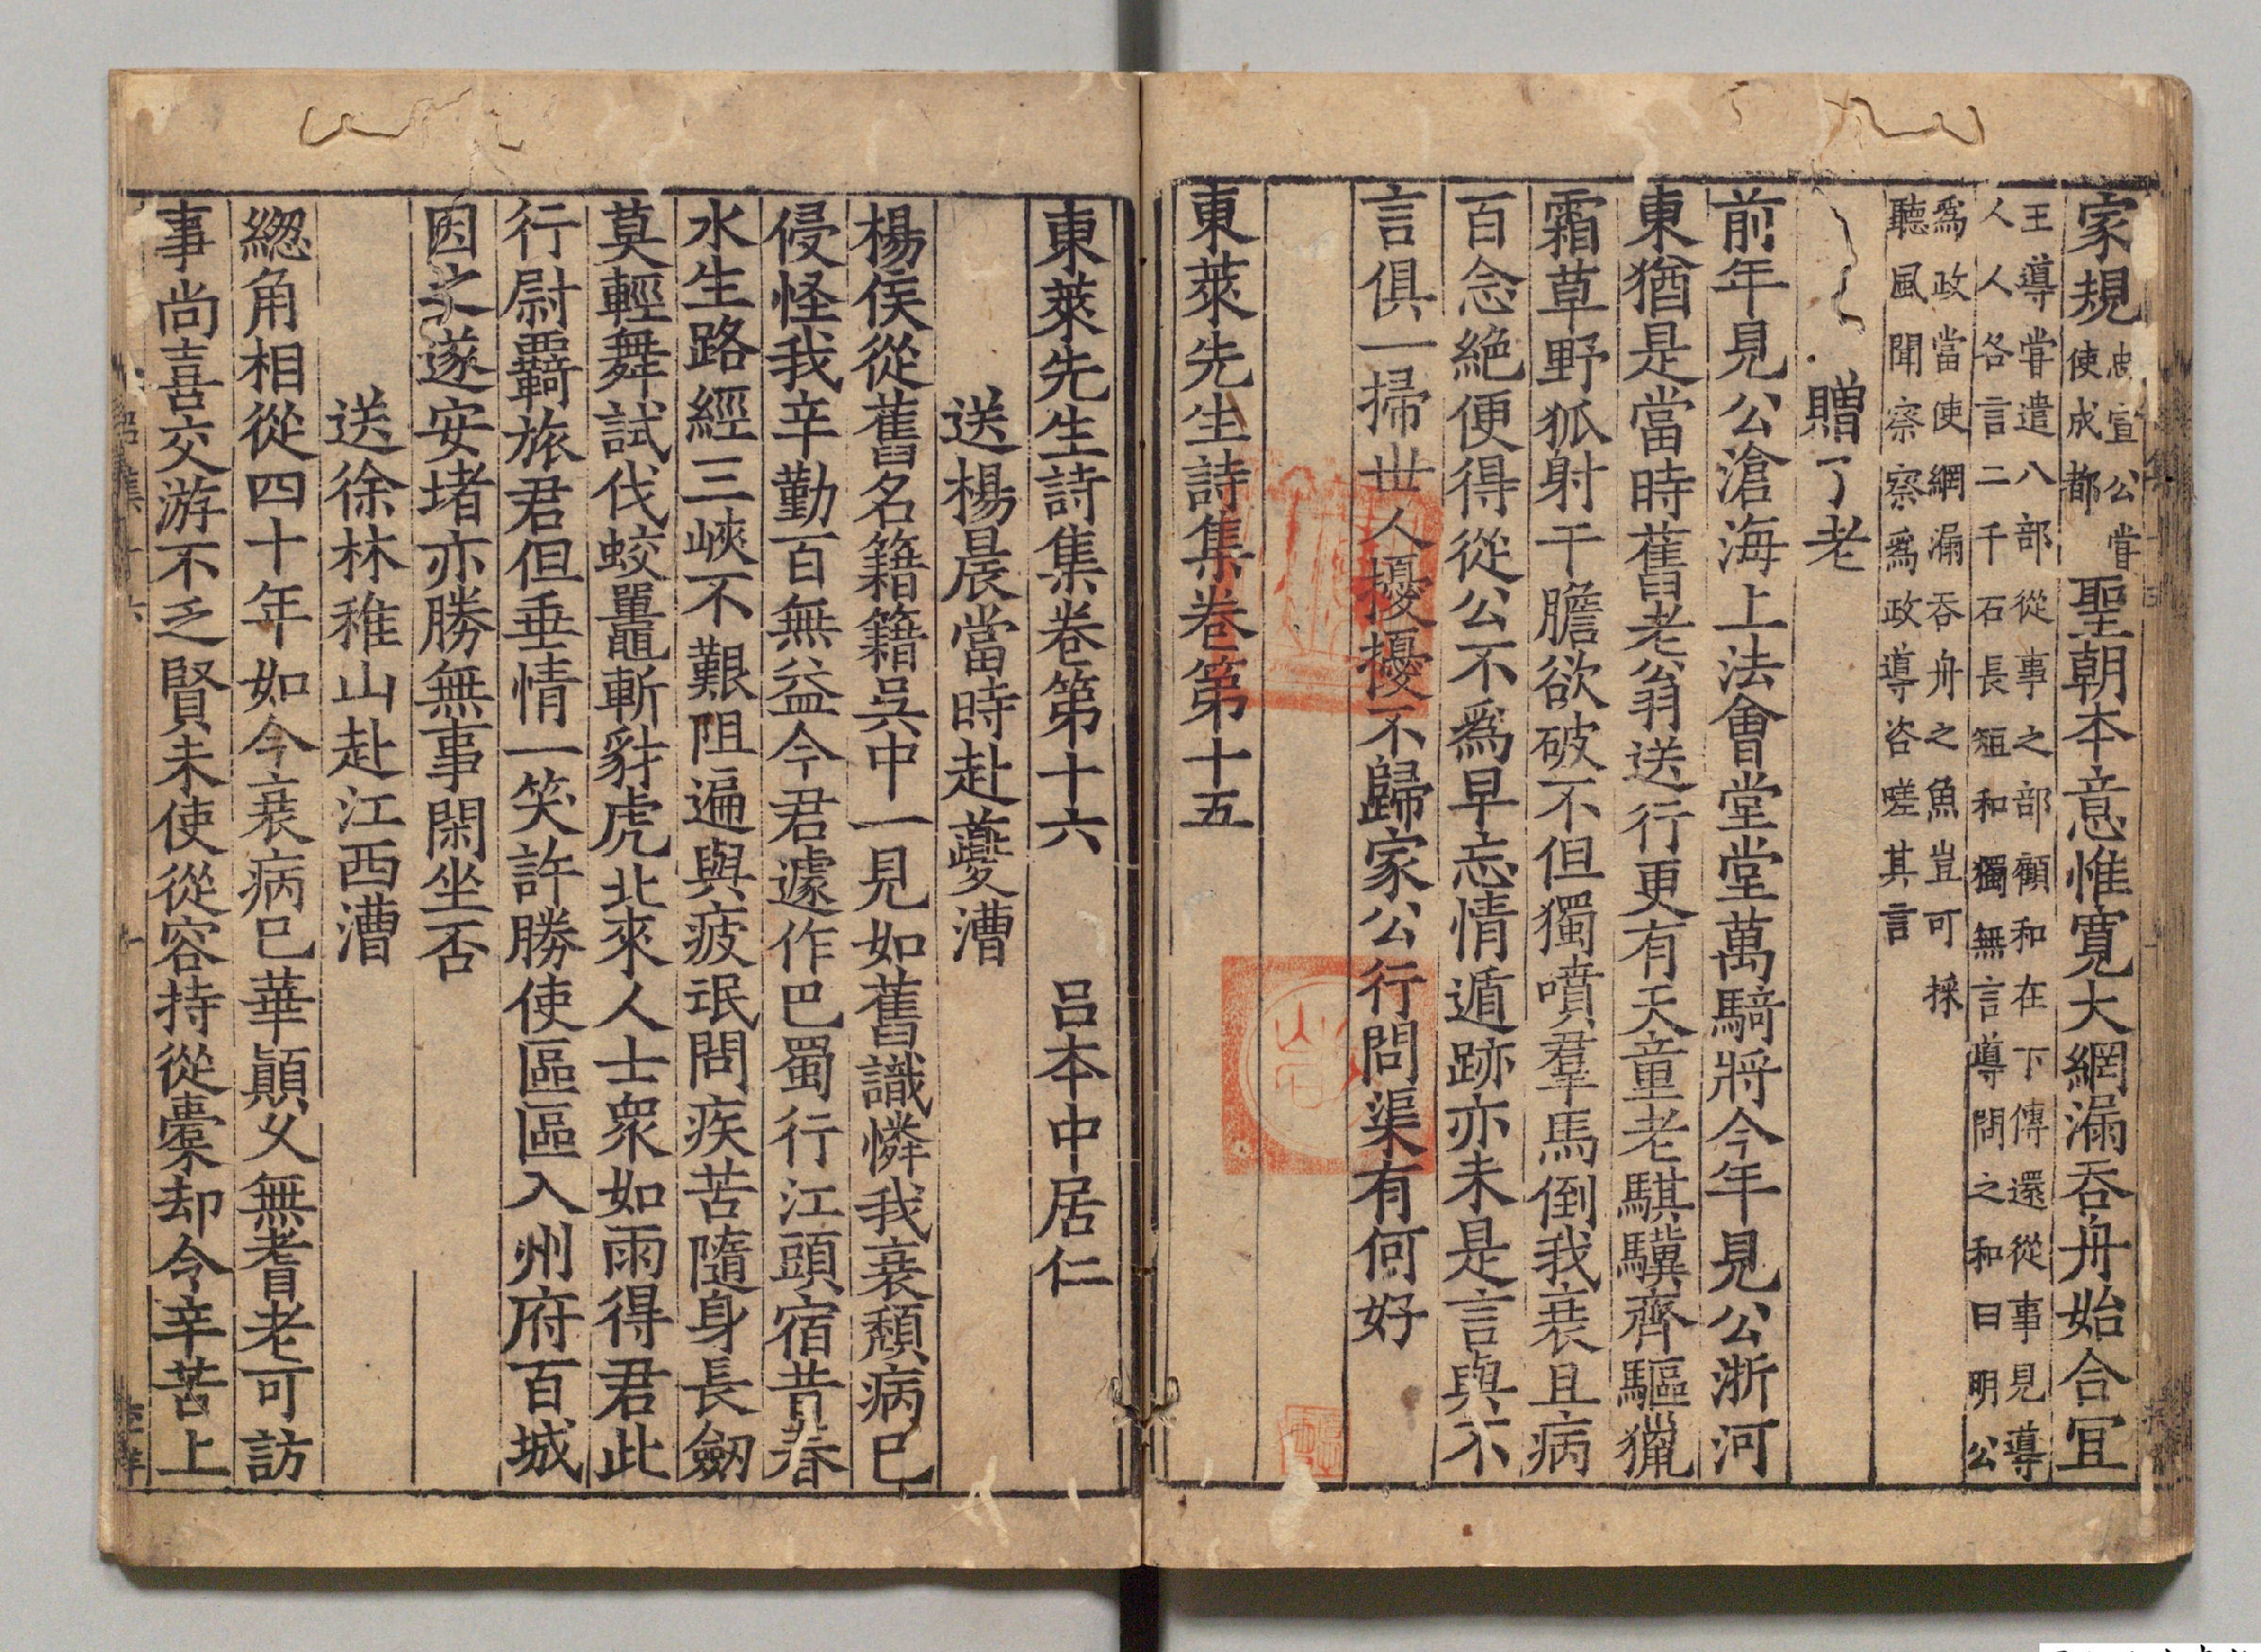 家規忠宣公嘗使成都聖朝本意惟寬大網漏吞舟始合冝
王導嘗遣八部從事之部顧和在下傳還從事見導
人人各言二千石長短和獨無言導問之和曰明公
爲政當使網漏吞舟之魚豈可採
聽風聞察察爲政導咨嗟其言
贈了老
前年見公滄海上法會堂堂萬騎將今年見公浙河
東猶是當時舊老翁送行更有天童老騏驥齊驅獵
霜草野狐射干膽欲破不但獨噴羣馬倒我衰且病
百念絶便得從公不爲早忘情遁跡亦未是言與不
言俱一掃丗人擾擾不歸家公行問渠有何好
東萊先生詩集卷第十五
東萊先生詩集卷第十六　吕本中居仁
送楊晨當時赴夔漕
楊侯從舊名籍籍吳中一見如舊識憐我衰頹病已
侵怪我辛勤百無益今君遽作巴蜀行江頭宿昔春
水生路經三峽不艱阻遍與疲氓問疾苦隨身長劒
莫輕舞試伐蛟鼉斬豺虎北來人士衆如雨得君此
行尉覊旅君但垂情一笑許勝使區區入州府百城
因之遂安堵亦勝無事閑坐否
送徐林稚山赴江西漕
緫角相從四十年如今衰病已華顚父無耆老可訪
事尚喜交游不乏賢未使從容持從橐却令辛苦上